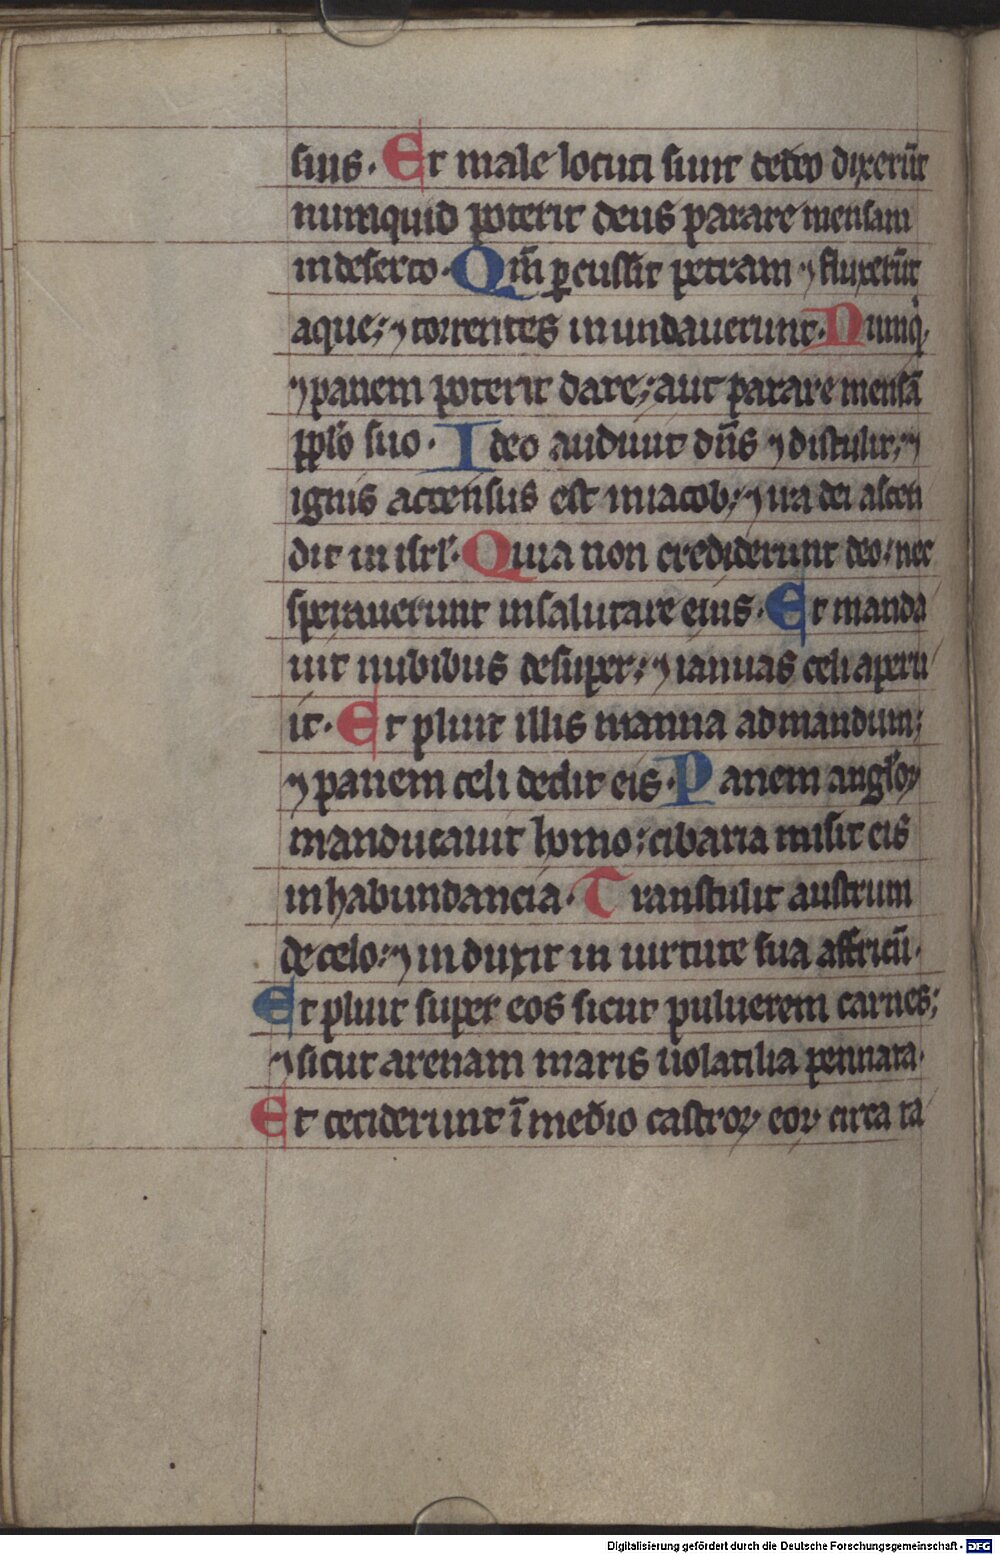 suis. Et male locuti sunt de deo dixerūt
numquid poterit deus parare mensam
in deserto. Qm̄ ꝑcussit petram ⁊ fluxerūt
aque; ⁊ torrentes in undauerunt. Numq̇.
⁊ panem poterit dare; aut parare mensā
pplo suo. Ideo audiuit dn̄s ⁊ distulit; ⁊
ignis accensus est in iacob; ⁊ ira dei ascen
dit in isrl̕. Quia non crediderunt deo; nec
sperauerunt in salutare eius. Et manda
uit nubibus desuper; ⁊ ianuas celi aperu
it. Et pluit illis manna ad mandum;
⁊ panem celi dedit eis. Panem angl̕oꝝ
manducauit homo; cibaria misit eis
in habundancia. Transtulit austrum
de celo; ⁊ in duxit in uirtute sua affricū.
Et pluit super eos sicut puluerem carnes;
⁊ sicut arenam maris uolatilia pennata.
Et ceciderunt ī medio castroꝝ eoꝝ circa ta
Digitalisierung gefördert durch die Deutsche Forschungsgemeinschaft - DFG